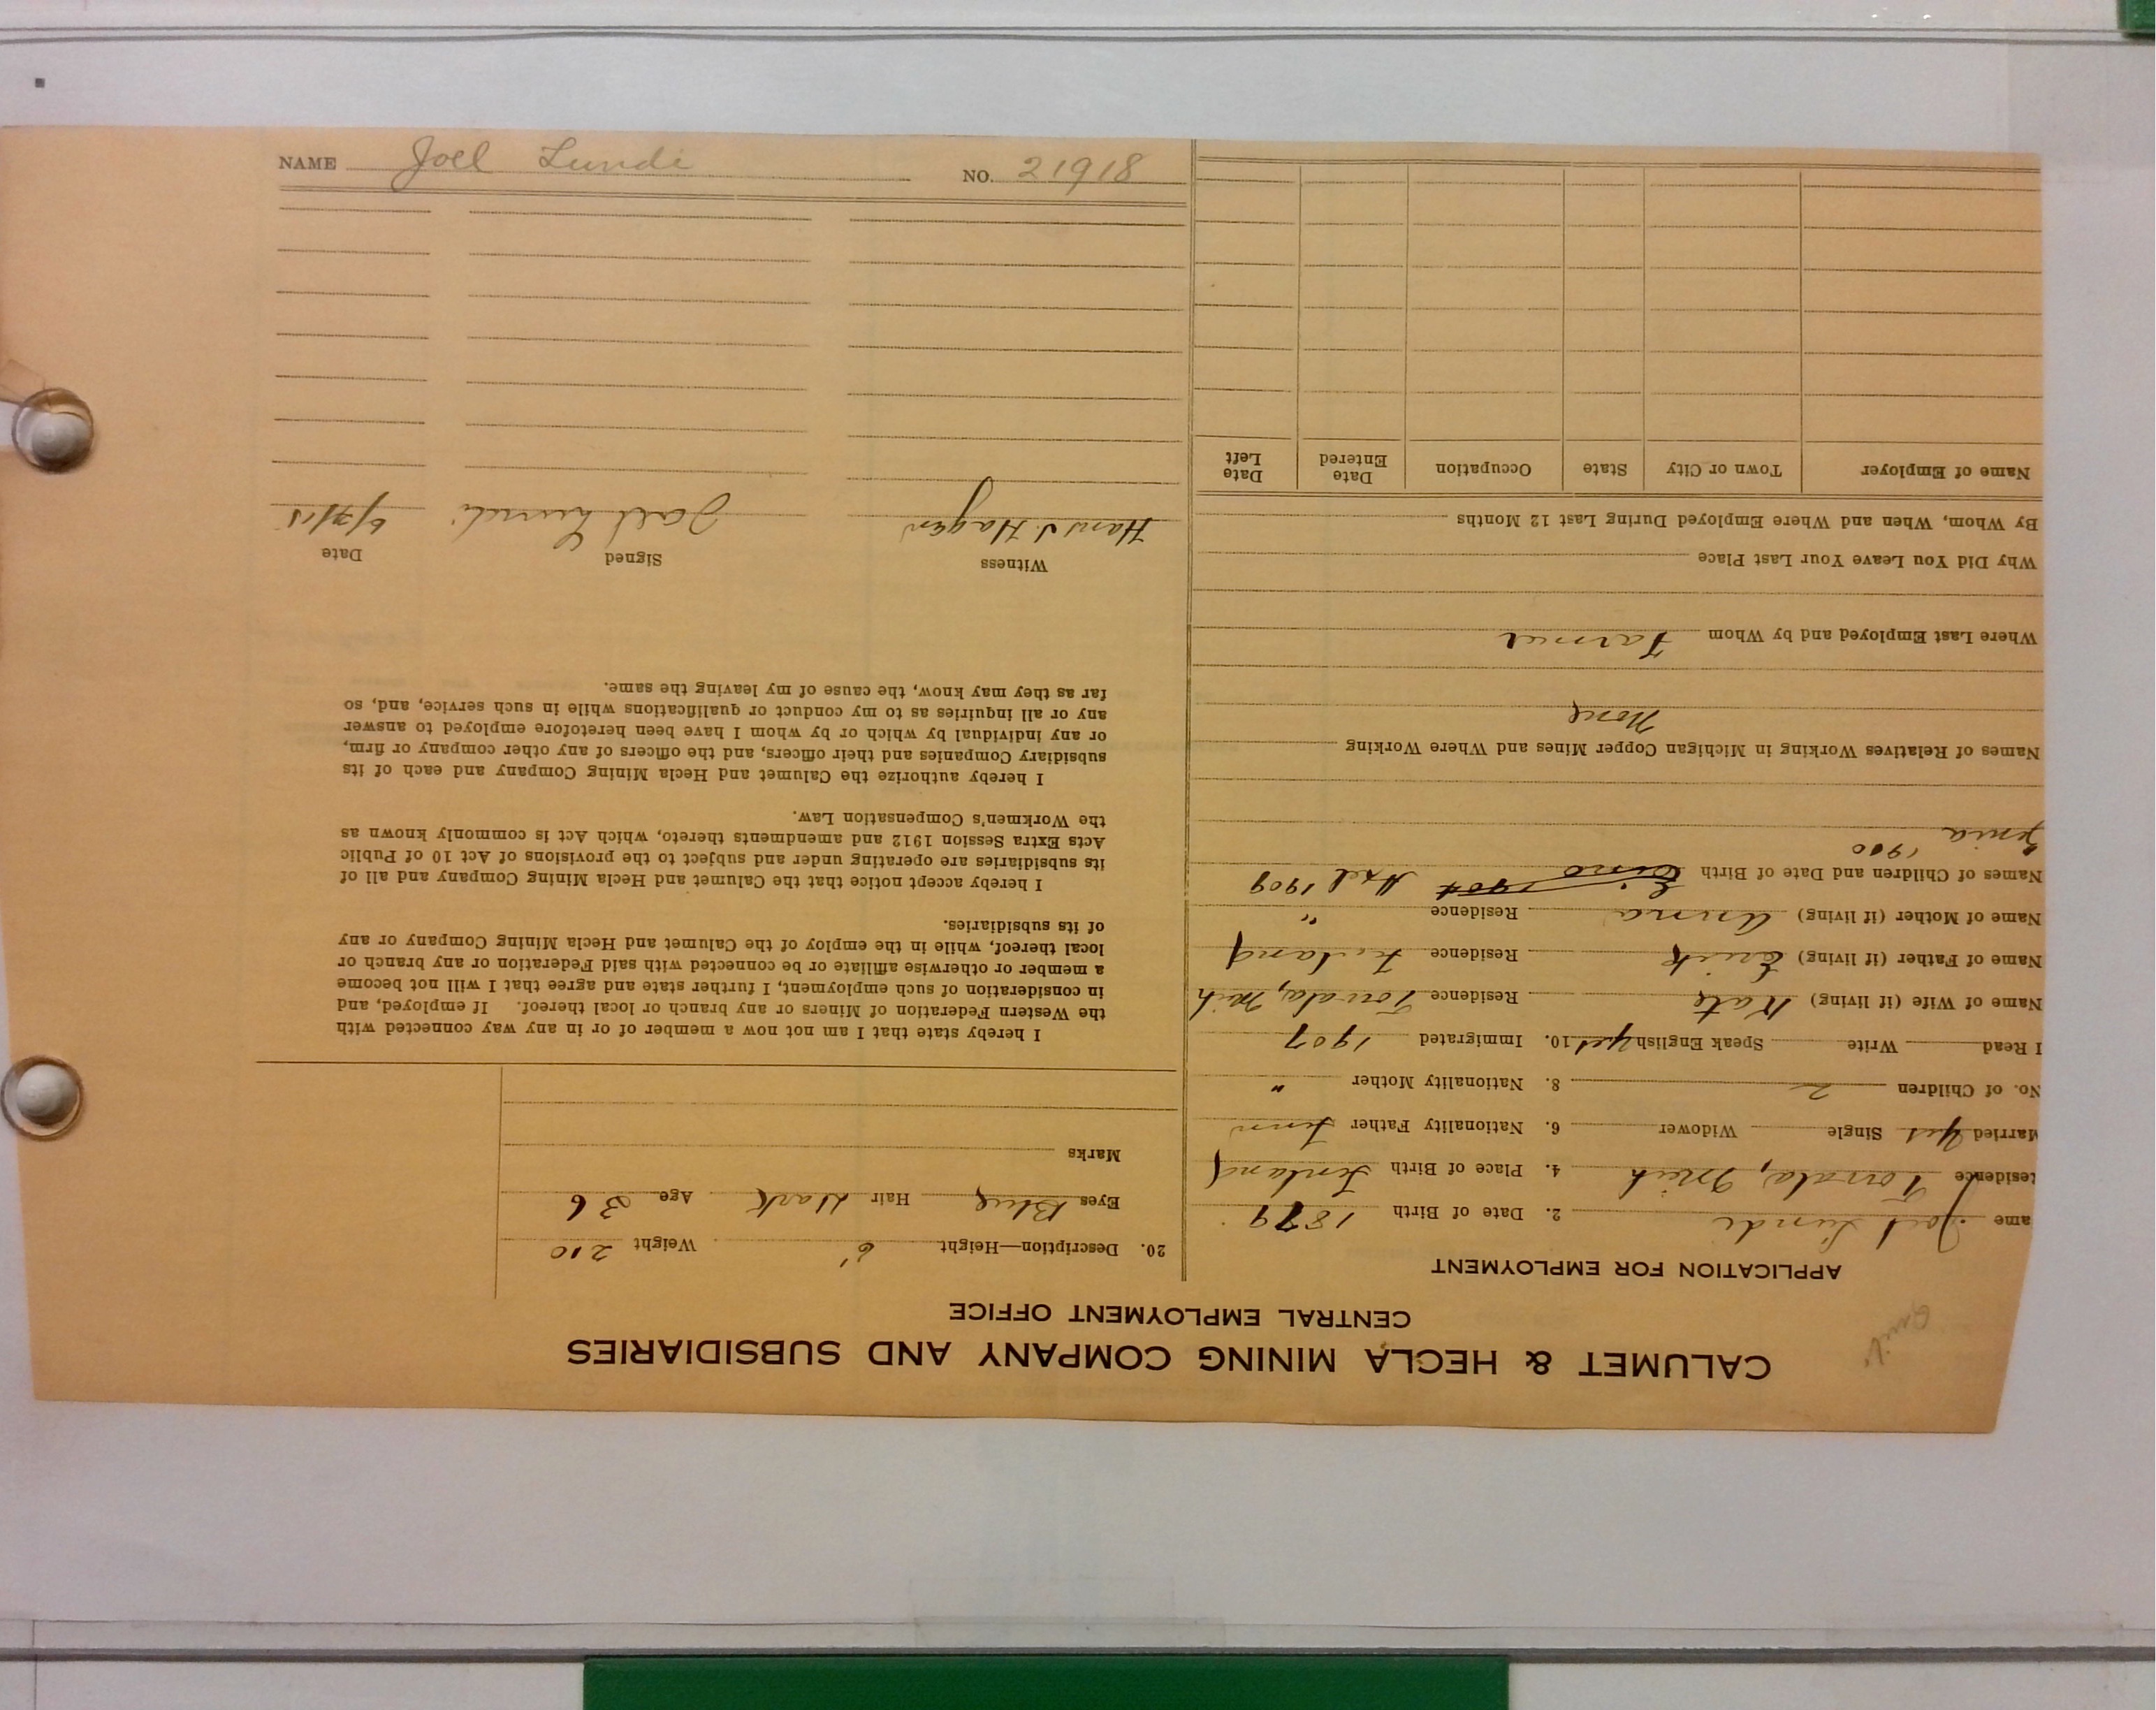 NAME Joel Lundi NO. 21918
CALUMET & HECLA MINING COMPANY AND SUBSIDIARIES
CENTRAL EMPLOYMENT OFFICE
APPLICATION FOR EMPLOYMENT
ame Joel Lundi 2. Date of Birth 1879
esidence Toivola, Mich 4. Place of Birth Finland
Married Yes Single Widower 6. Nationality Father Finn
No. of Children 2 8. Nationality Mother "
I Read Write Speak English yes 10. Immigrated 1907
Name of Wife (if living) Kate Residence Toivola, Mich
Name of Father (if living) Erick Residence Finland
Name of Mother (if living) Anna Residence "
Names of Children and Date of Birth Eino 1904 Axel 1909
1900
Names of Relatives Working in Michigan Copper Mines and Where Working
None
Where Last Employed and by Whom Farmer
Why Did You Leave Your Last Place
By Whom, When and Where Employed During Last 12 Months
Name of Employer Town or City State Occupation Date Entered Date Left
20. Description—Height 6' Weight 210
Eyes Blue Hair Dark Age 36
Marks
I hereby state that I am not now a member of or in any way connected with
the Western Federation of Miners or any branch or local thereof. If employed, and
in consideration of such employment, I further state and agree that I will not become
a member or otherwise affiliate or be connected with said Federation or any branch or
local thereof, while in the employ of the Calumet and Hecla Mining Company or any
of its subsidiaries.
I hereby accept notice that the Calumet and Hecla Mining Company and all of
its subsidiaries are operating under and subject to the provisions of Act 10 of Public
Acts Extra Session 1912 and amendments thereto, which Act is commonly known as
the Workmen's Compensation Law.
I hereby authorize the Calumet and Hecla Mining Company and each of its
subsidiary Companies and their officers, and the officers of any other company or firm,
or any individual by which or by whom I have been heretofore employed to answer
any or all inquiries as to my conduct or qualifications while in such service, and, so
far as they may know, the cause of my leaving the same.
Witness Signed Date
Hans J. Hagen Joel Lundi